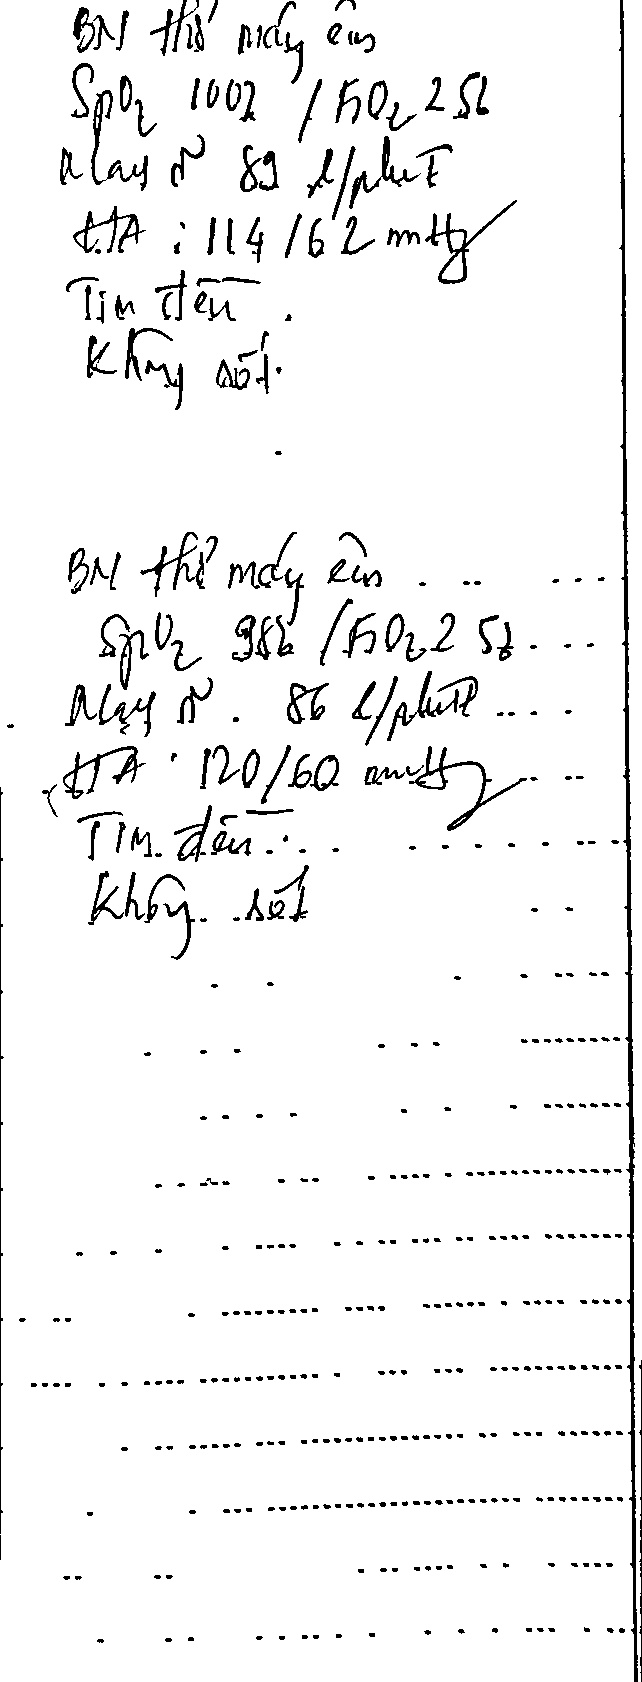 BN thở máy êm
SpO2 100% / FiO2 25%
Mạch 89 l/phút
HA : 114/62 mmHg
Tim đều.
Không sốt.
BN thở máy êm
SpO2 98% / FiO2 25%
Mạch. 86 l/phút
HA : 120/60 mmHg
Tim đều.
Không sốt